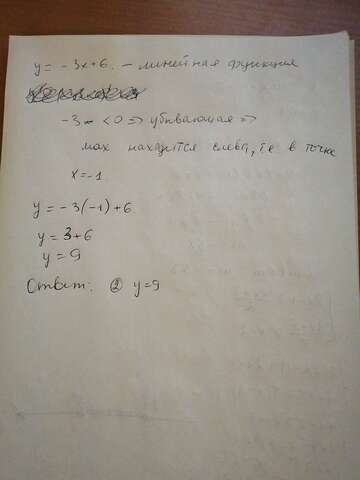 y = -3x+6. – линейная функция
-3 < 0 => убывающая =>
мах находится слева, т.е в точке
x=-1
y = -3(-1)+6
y = 3+6
y = 9
Ответ: ② y=9